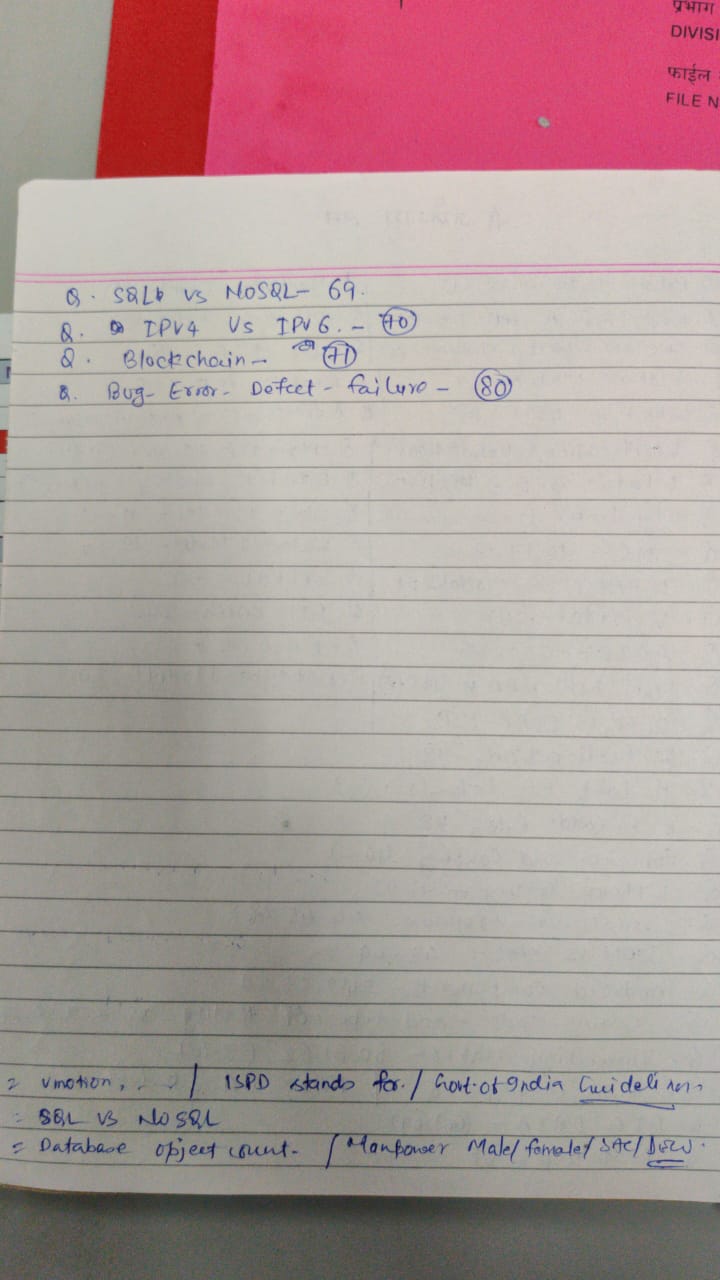 प्रभाग
DIVISI
फाईल
FILE N
Q. SQL vs NoSQL- 69.
Q. IPV4 Vs IPV6. - 70
Q. Blockchain - 71
Q. Bug- Error- Defect - failure - 80
= vmotion, / ISPD stands for. / Govt. of India Guidelines
= SQL vs NoSQL
= Database object count. / Manpower Male/ female/ SAC/